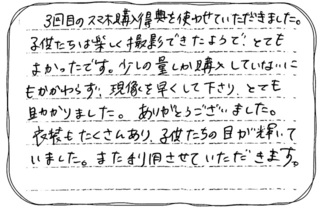 3回目のスマホ購入得典を使わせていただきました。
子供たちは楽しく撮影できたようで、とても
よかったです。少しの量しか購入していないに
もかかわらず、現像を早くして下さり、とても
助かりました。ありがとうございました。
衣装もたくさんあり、子供たちの目が輝いて
いました。また利用させていただきます。